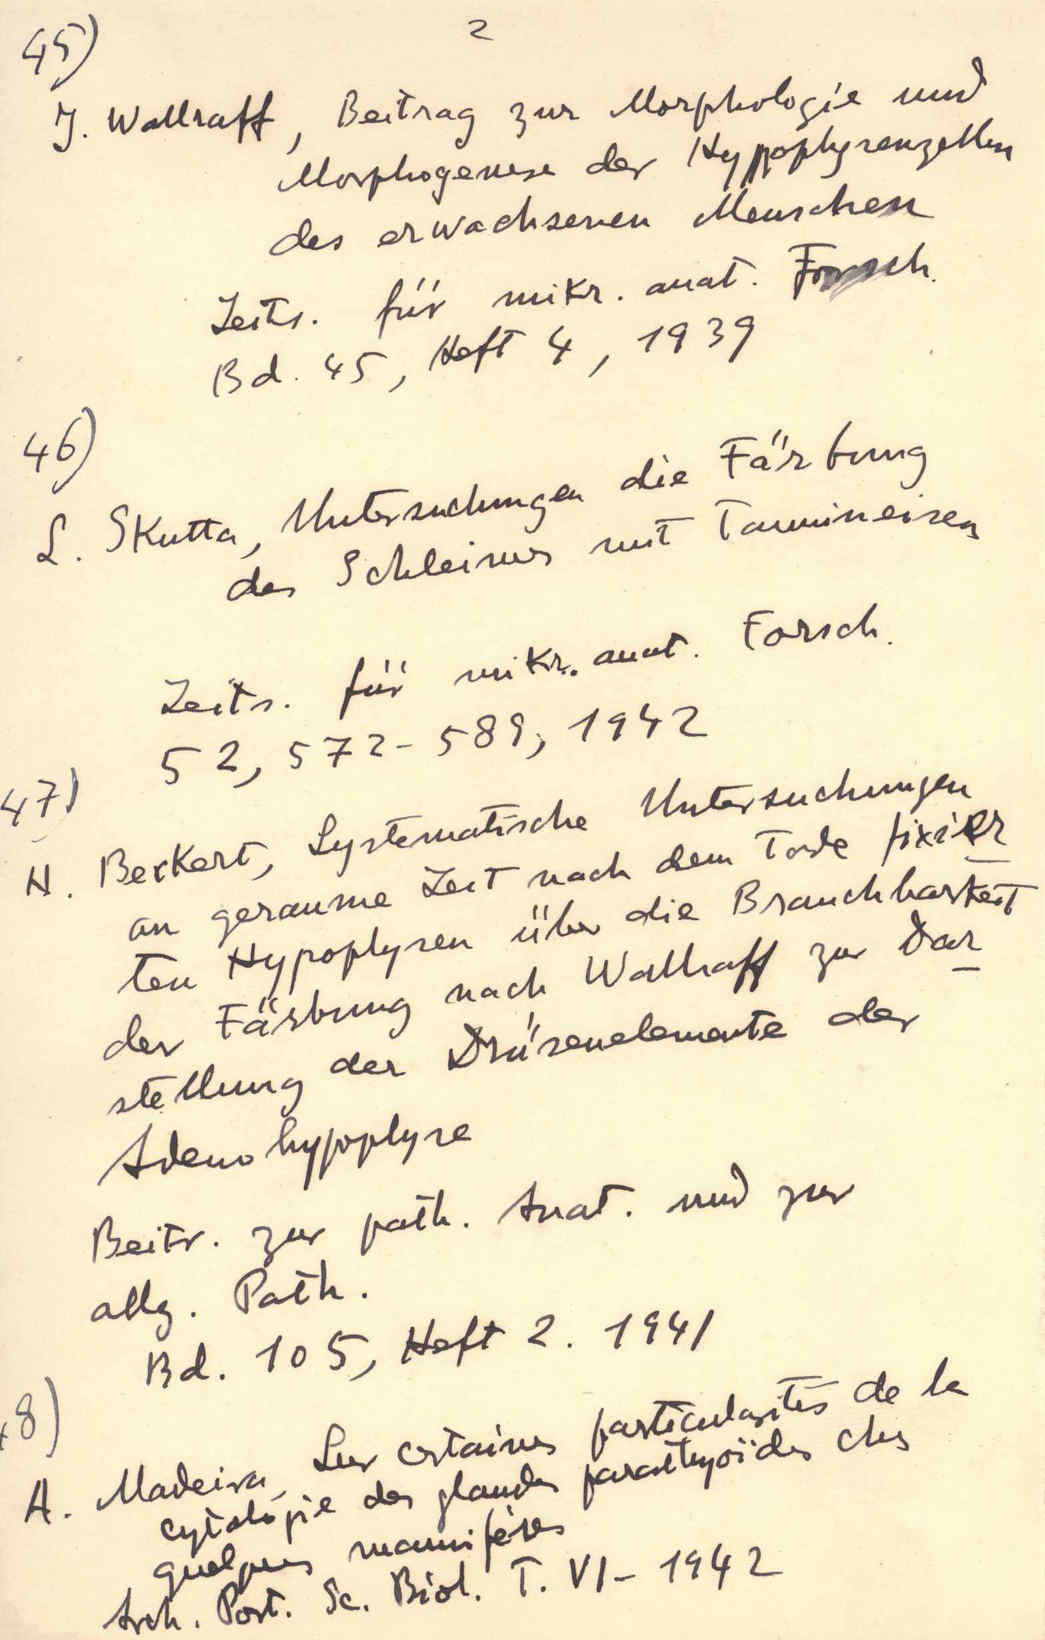 2
45)
J. Wallraff, Beitrag zur Morphologie und
Morphogenese der Hypophysenzellen
des erwachsenen Menschen
Zeits. für mikr. anat. Forsch.
Bd. 45, Heft 4, 1939
46)
L. Skutta, Untersuchungen die Färbung
des Schleimes mit Tannineisen
Zeits. für mikr. anat. Forsch.
52, 572-589, 1942
47)
H. Beckert, Systematische Untersuchungen
an geraume Zeit nach dem Tode fixier
ten Hypophysen über die Brauchbarkeit
der Färbung nach Wallraff zur Dar
stellung der Drüsenelemente der
Adenohypophyse
Beitr. zur path. Anat. und zur
allg. Path.
Bd. 105, Heft 2. 1941
48)
A. Madeira, Sur certaines particularités de la
cytologie des glandes parathyroïdes chez
quelques mammifères
Arch. Port. Sc. Biol. T. VI - 1942